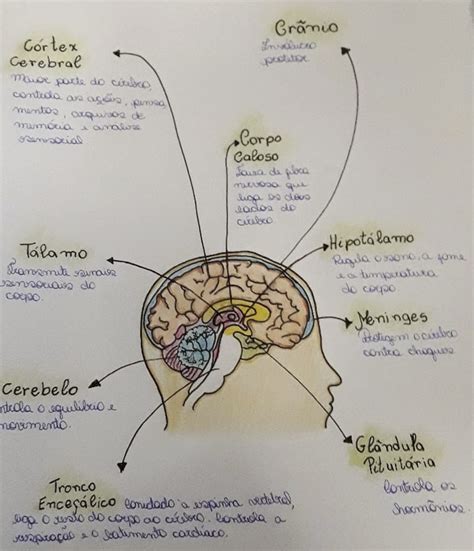 Córtex
Cerebral
Maior parte do cérebro,
controla as ações, pensa
mentos, arquivos de
memória e análise
sensorial
Crânio
Invólucro
protetor
Corpo
Caloso
Faixa de fibra
nervosa que
liga os dois
lados do
cérebro.
Tálamo
Transmite sinais
sensoriais do
corpo.
Hipotálamo
Regula o sono, a fome
e a temperatura
do corpo.
Meninges
Protegem o cérebro
contra choques
Cerebelo
controla o equilíbrio e
movimento.
Glândula
Pituitária
Controla os
hormônios.
Tronco
Encefálico
a espinha vertebral,
liga o resto do corpo ao cérebro. Controla a
respiração e o batimento cardíaco.